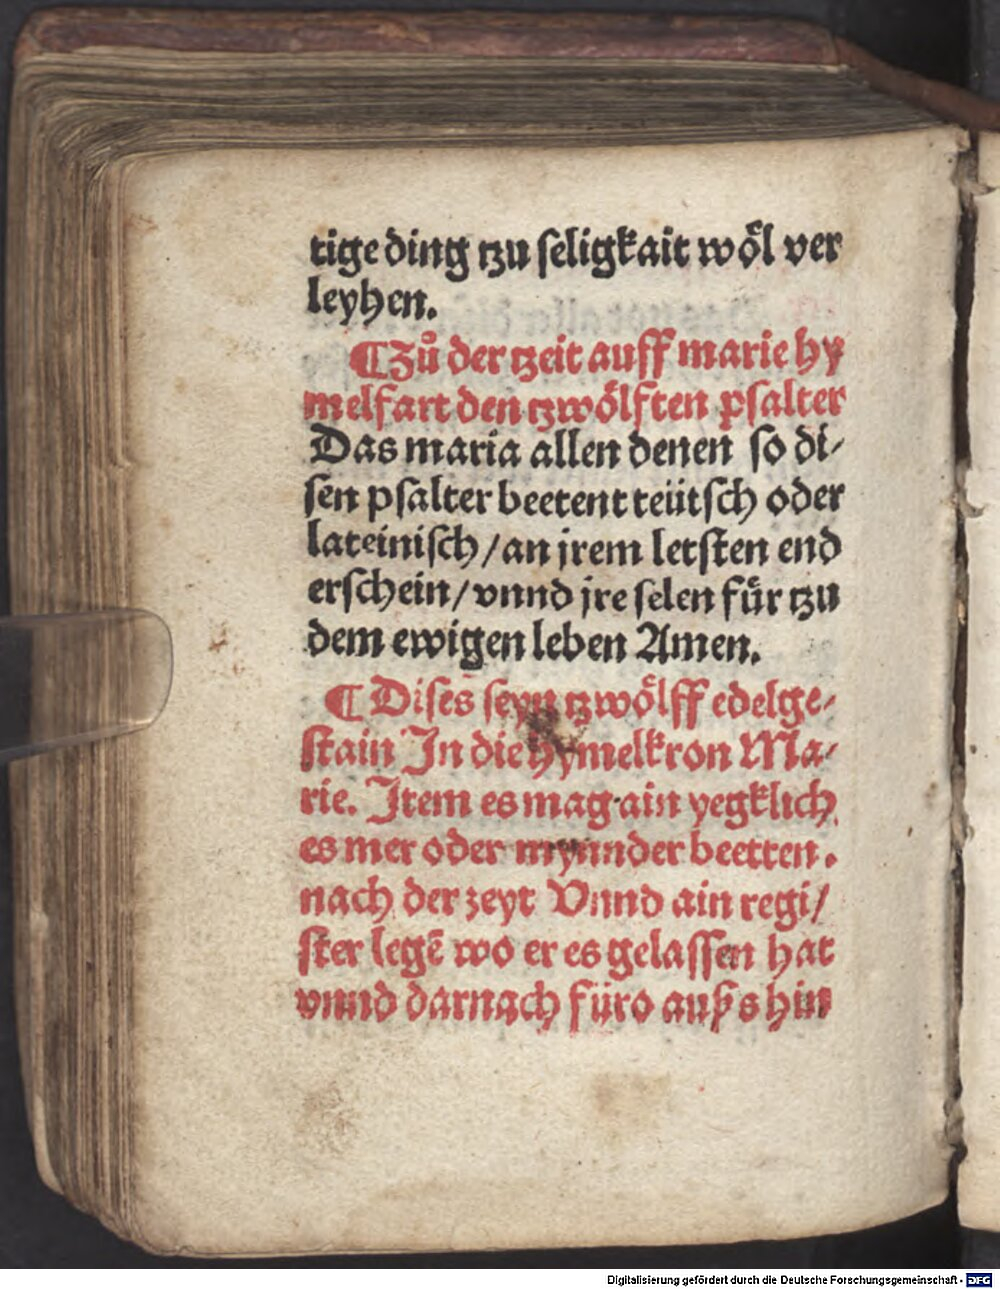 tige ding tzu seligkait wöl ver
leyhen.
¶Zů der tzeit auff marie hy
melfart den tzwölften psalter
Das maria allen denen so di/
sen psalter beetent teütsch oder
lateinisch/an jrem letsten end
erschein/vnnd jre selen für tzu
dem ewigen leben Amen.
¶ Dises seyn tzwölff edelge/
stain In die hymelkron Ma/
rie. Item es mag ain yegklich
es mer oder mynnder beetten.
nach der zeyt Vnnd ain regi/
ster legē wo er es gelassen hat
vnnd darnach füro auß hin
Digitalisierung gefördert durch die Deutsche Forschungsgemeinschaft - DFG